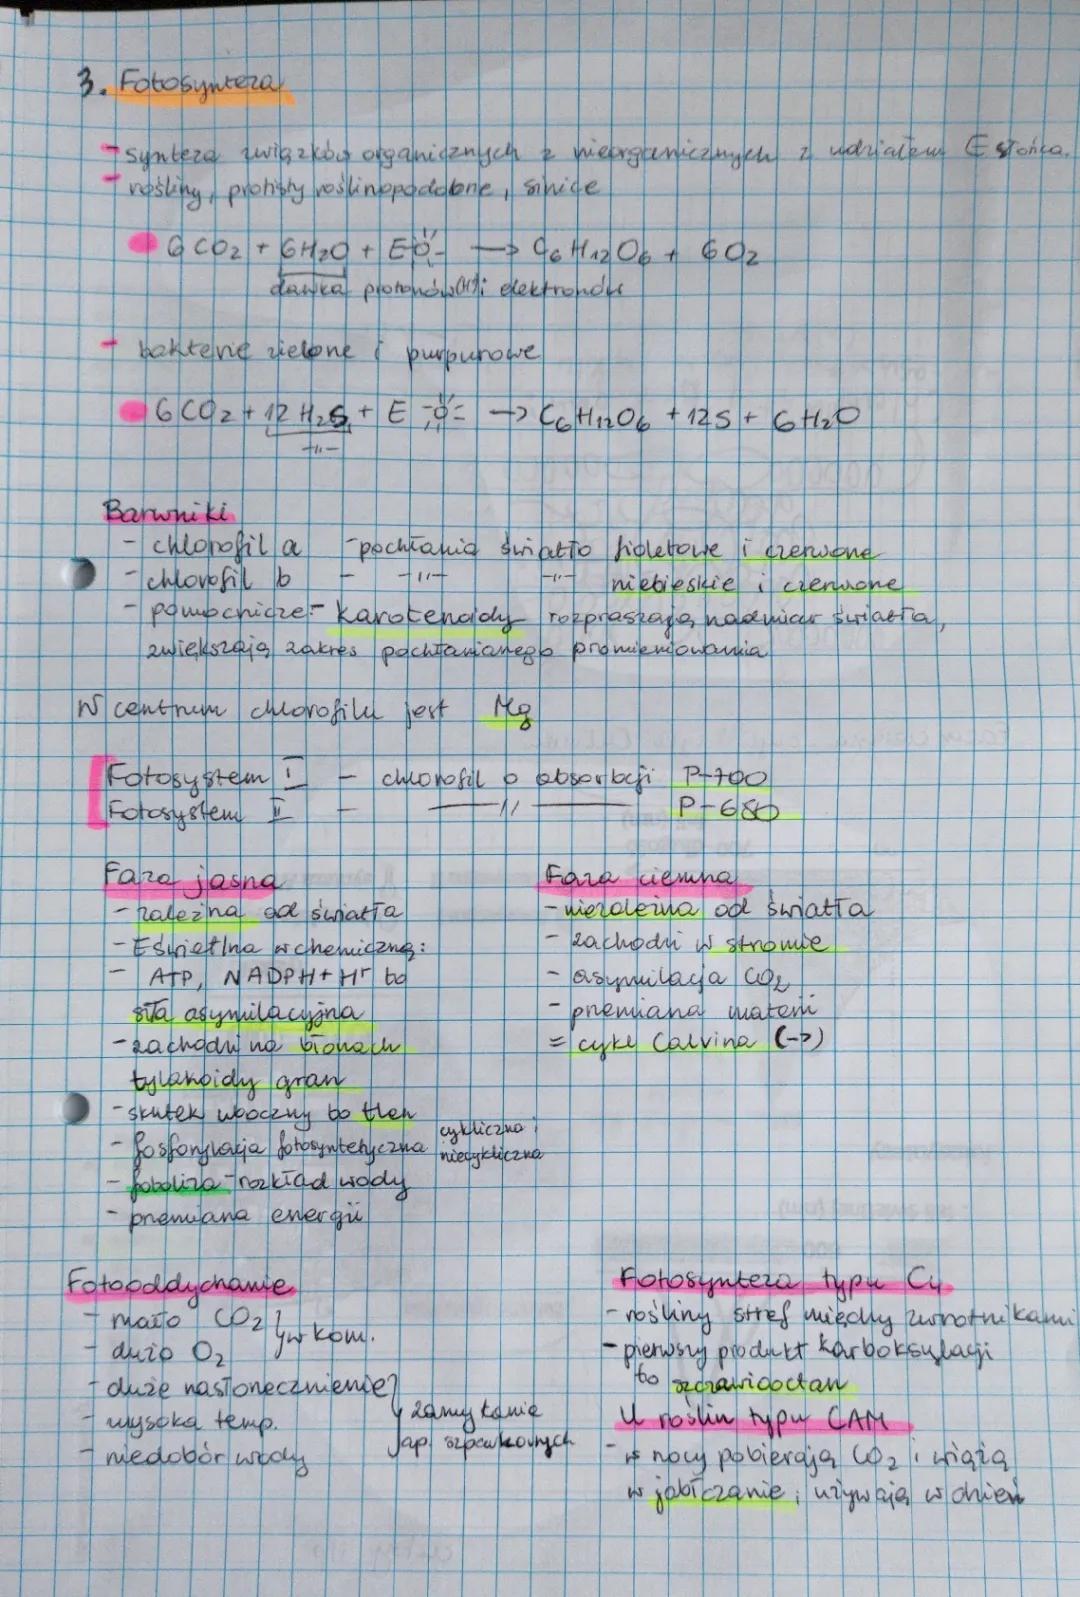 3. Fotosynteza
- synteza związków organicznych z nieorganicznych z udziałem E słońca.
- rośliny, protisty roślinopodobne, sinice
6 CO2 + 6H2O + E → C6H12O6 + 6O2
dawka protonów(H+) i elektronów
- bakterie zielone i purpurowe
6 CO2 + 12 H2S + E → C6H12O6 + 12S + 6H2O
-||-
Barwniki
- chlorofil a - pochłania światło fioletowe i czerwone
- chlorofil b - -||- -||- niebieskie i czerwone
- pomocnicze - karotenoidy rozpraszają nadmiar światła,
zwiększają zakres pochłanianego promieniowania
W centrum chlorofilu jest Mg
Fotosystem I - chlorofil o absorbcji P-700
Fotosystem II - —||— P-680
Faza jasna
- zależna od światła
- Eświetlna w chemiczną:
- ATP, NADPH+H+ to
siła asymilacyjna
- zachodzi na błonach
tylakoidy gran
- skutek uboczny to tlen
- fosforylacja fotosyntetyczna cykliczna i
niecykliczna
- fotoliza - rozkład wody
- przemiana energii
Faza ciemna
- niezależna od światła
- zachodzi w stromie
- asymilacja CO2
- przemiana materii
= cykl Calvina (->)
Fotooddychanie
- mało CO2 } w kom.
- dużo O2
- duże nasłonecznienie
- wysoka temp. } zamykanie
- niedobór wody ap. szparkowych
Fotosynteza typu C4
- rośliny stref między zwrotnikami
- pierwszy produkt karboksylacji
to szczawiooctan
U roślin typu CAM
- w nocy pobierają CO2 i wiążą
w jabłczanie, używają w dzień